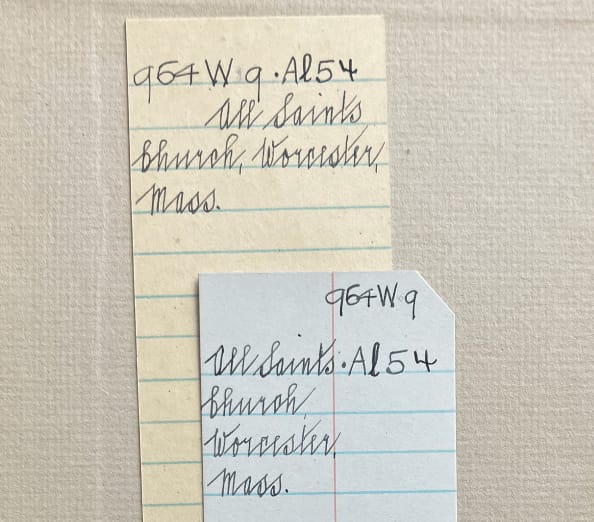 964W9.Al54
All Saints
Church, Worcester,
Mass.
964W9
All Saints.Al54
Church,
Worcester,
Mass.